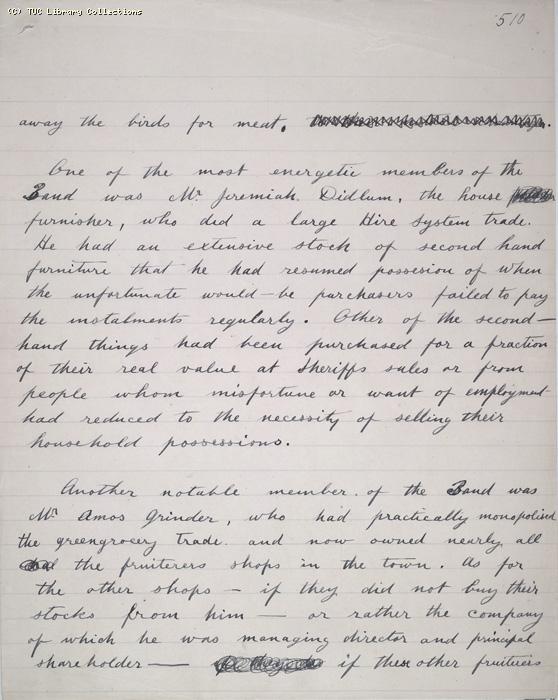 (C) TUC Library Collections
510
away the birds for meat.
One of the most energetic members of the
Band was Mr Jeremiah Didlum, the house
furnisher, who did a large Hire System trade.
He had an extensive stock of second hand
furniture that he had resumed possesion of when
the unfortunate would-be purchasers failed to pay
the instalments regularly. Other of the second-
hand things had been purchased for a fraction
of their real value at Sheriffs sales or from
people whom misfortune or want of employment
had reduced to the necessity of selling their
household possessions.
Another notable member of the Band was
Mr Amos Grinder, who had practically monopolised
the greengrocery trade and now owned nearly all
the fruiterers shops in the town. As for
the other shops - if they did not buy their
stocks from him - or rather the company
of which he was managing director and principal
shareholder - if these other fruiterers